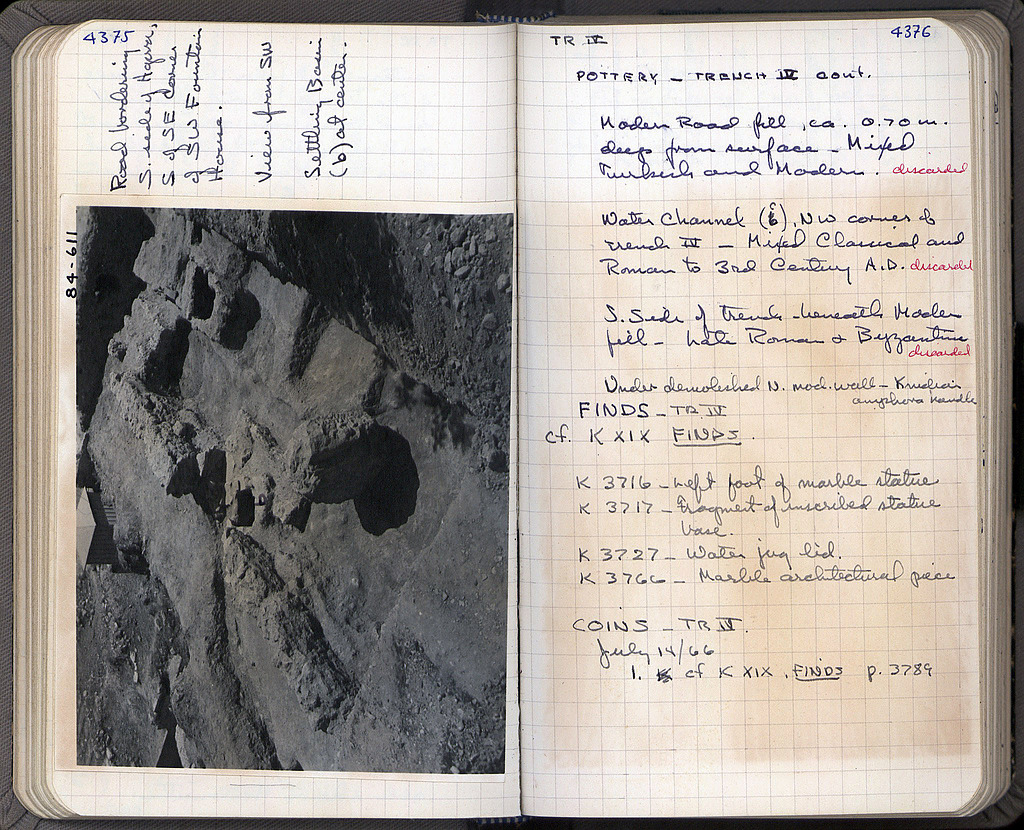 4375
Road bordering
S. side of Agora,
S of SE corner
of SW Fountain
House.
View from SW
Settling Basin
(b) at center.
84-611
4376
TR IV
POTTERY - TRENCH IV cont.
Modern Road fill, ca. 0.70 m.
deep from surface - Mixed
Turkish and Modern. discarded
Water Channel (b), NW corner of
trench IV - Mixed Classical and
Roman to 3rd Century A.D. discarded
S. Side of trench - beneath Modern
fill - Late Roman & Byzantine
discarded
Under demolished N. mod. wall - Knidian
amphora handle
FINDS - TR IV
cf. K XIX FINDS.
K 3716 - Left foot of marble statue
K 3717 - Fragment of inscribed statue
base.
K 3727 - Water jug lid.
K 3766 - Marble architectural piece
COINS - TR IV.
July 14/66
1. cf K XIX, FINDS p. 3789